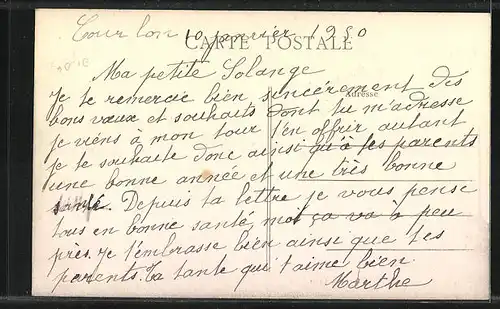 Tour lon 10 janvier 1950
CARTE POSTALE
Ma petite Solange
Adresse
Je te remercie bien sincérement des
bons vœux et souhaits dont tu m'adresse
je viéns à mon tour t'en offrir autant
je te souhaite donc ainsi qu'à tes parents
une bonne année et une très bonne
santé. Depuis ta lettre je vous pense
tous en bonne santé moi ça va à peu
près. Je t'embrasse bien ainsi que tes
parents. Ta tante qui t'aime bien.
Marthe